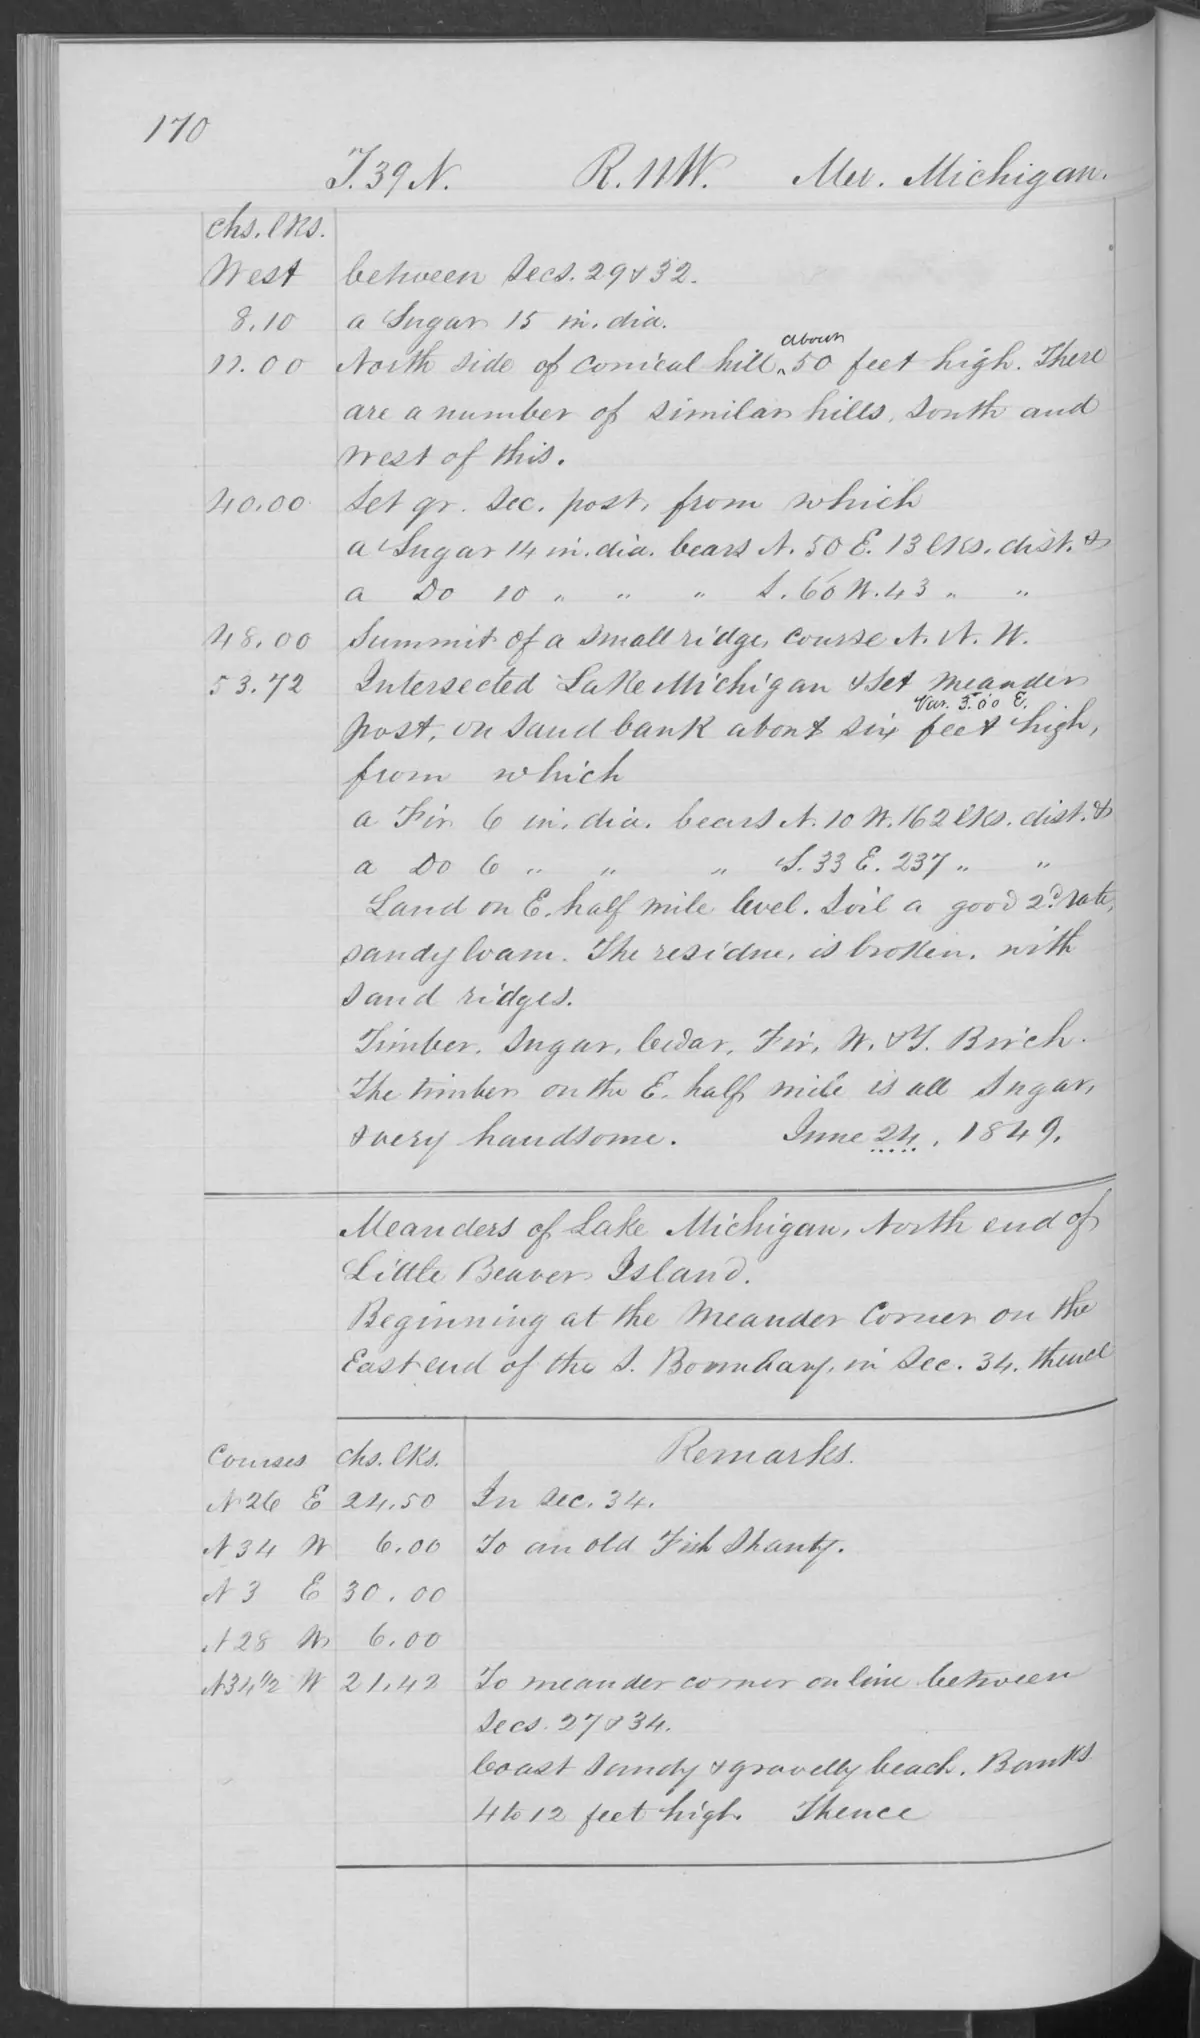 170
T. 39 N. R. 11 W. Mer. Michigan.
chs. lks.
West between Secs. 29 & 32.
8.10 a Sugar 15 in. dia.
17.00 North side of conical hill ^about 50 feet high. There
are a number of similar hills, South and
West of this.
40.00 Set qr. Sec. post, from which
a Sugar 14 in. dia. bears N. 50 E. 13 lks. dist. &
a Do 10 " " " S. 60 W. 43 " "
48.00 Summit of a small ridge, course N. N. W.
53.72 Intersected Lake Michigan & Set meander
Var. 3°.00 E.
post, on sand bank about six feet high,
from which
a Fir 6 in. dia. bears N. 10 W. 162 lks. dist. &
a Do 6 " " " S. 33 E. 237 " "
Land on E. half mile level. Soil a good 2d. rate,
sandy loam. The residue, is broken, with
sand ridges.
Timber, Sugar, Cedar, Fir, W. & Y. Birch.
The timber on the E. half mile is all Sugar,
& very handsome. June 24, 1849.
Meanders of Lake Michigan, North end of
Little Beaver Island.
Beginning at the Meander Corner on the
East end of the S. Boundary, in Sec. 34, thence
Courses chs. lks. Remarks.
N 26 E 24.50 In Sec. 34.
N 34 W 6.00 To an old Fish Shanty.
N 3 E 30.00
N 28 W 6.00
N 34 1/2 W 21.42 To meander corner on line between
Secs. 27 & 34.
Coast Sandy & gravelly beach. Banks
4 to 12 feet high. Thence